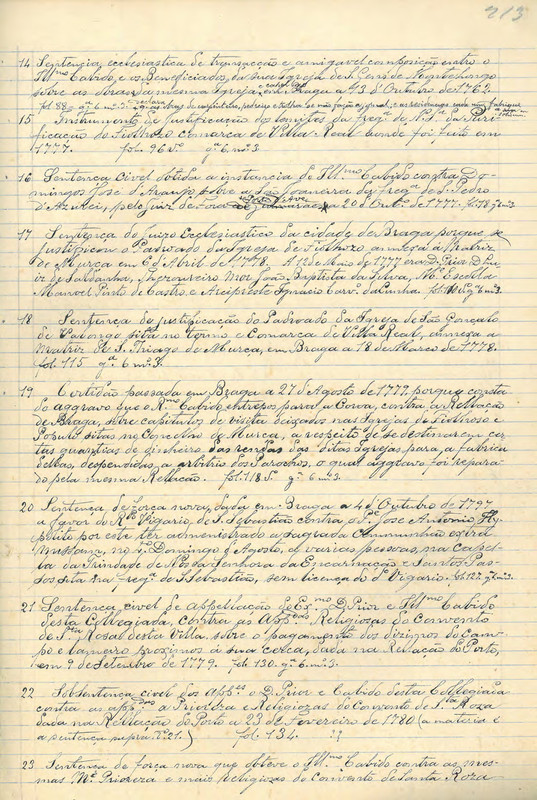 213
14 Sentença ecclesiastica de transacção e amigavel composição entre o
Ill.mo Cabido, e os Beneficiados, da sua Igreja de S. Gens de Montelongo
sobre as obras da mesma Igreja, em Braga a 13 d'Outubro de 1762.
fol. 88 g.a 6. m.o 3.
15 Instrumento de justificação dos limites da freg.a de N. S.a da Puri-
ficação do Fiolhozo comarca de Villa-Real aonde foi feito em
1777. fol. 96 v.o g.a 6. m.o 3.
16 Sentença civel obtida a instancia do Ill.mo Cabido contra Do-
mingos José d'Araujo sobre a São Joaneira da freg.a de S. Pedro
d'Azurei, pelo Juiz de Fora de Guimarães a 20 d'Outb.o de 1777. fol. 98 g.a 6 m.o 3.
17 Sentença do Juizo Ecclesiastico da cidade de Braga porque se
justificou o Padroado da Igreja de Fiolhozo annexa á Matriz
de Murça em 6 d'Abril de 1778. A 12 de Maio de 1777 era D. Prior D. Lu-
iz de Saldanha, Thezoureiro Mor João Baptista da Silva, M.e Escolla
Manoel Pinto de Castro, e Arcipreste Ignacio Carv.o da Cunha. fol. 110 g.a 6. m.o 3.
18 Sentença de justificação do Padroado da Igreja de São Gonçalo
de Vallongo sita no termo e Comarca de Villa Real, annexa a
Matriz de S. Thiago de Murça, em Braga a 18 de Março de 1778.
fol. 115 g.a 6. m.o 3.
19 Certidão passada em Braga a 27 d'Agosto de 1777 porque consta
do aggravo que o R.mo Cabido entrepos para a Coroa, contra a Rellação
de Braga, sobre capitulos de visita deixados nas Igrejas de Fiolhoso e
Populo sitas no Concelho de Murça, a respeito de se destinarem cer-
tas quantias de dinheiro das rendas das ditas Igrejas, para a fabrica
dellas, despendidas, a arbitrio dos Parochos, o qual aggravo foi repara-
do pela mesma Rellação. fol. 118 v. g.a 6. m.o 3.
20 Sentença de força nova, dada em Braga a 4 d'Outubro de 1797
a favor do R.do Vigario, de S. Sebastião contra o P.e José Antonio
por este ter administrado a sagrada Communhão extra
missam, no 1.o Domingo d'Agosto, a varias pessoas, na capel-
la da Trindade de Nossa Senhora da Encarnação e Santos Pas-
sos sita na freg.a de S. Sebastião, sem licença do d.o Vigario. fol. 122 g.a 6. m.o 3.
21 Sentença civel de appellação do Ex.mo D. Prior e Ill.mo Cabido
desta Collegiada, contra as App.das Religiozas do Convento
de S.ta Rosa desta Villa, sobre o pagamento dos dizimos do cam-
po e lameiro proximos á sua cerca, dada na Rellação do Porto,
em 9 de Setembro de 1779. fol. 130. g.a 6. m.o 3.
22 Sobsentença civel dos App.es o D. Prior e Cabido desta Collegiada
contra as app.das a Prioreza e Religiozas do Convento de S.ta Roza
dada na Rellação do Porto a 23 de Fevereiro de 1780 (a materia é
a sentença supra n.o 21.) fol. 134. ??
23 Sentença de força nova que obteve o Ill.mo Cabido contra as mes-
mas M.e Prioreza e mais religiozas do Convento de Santa Roza